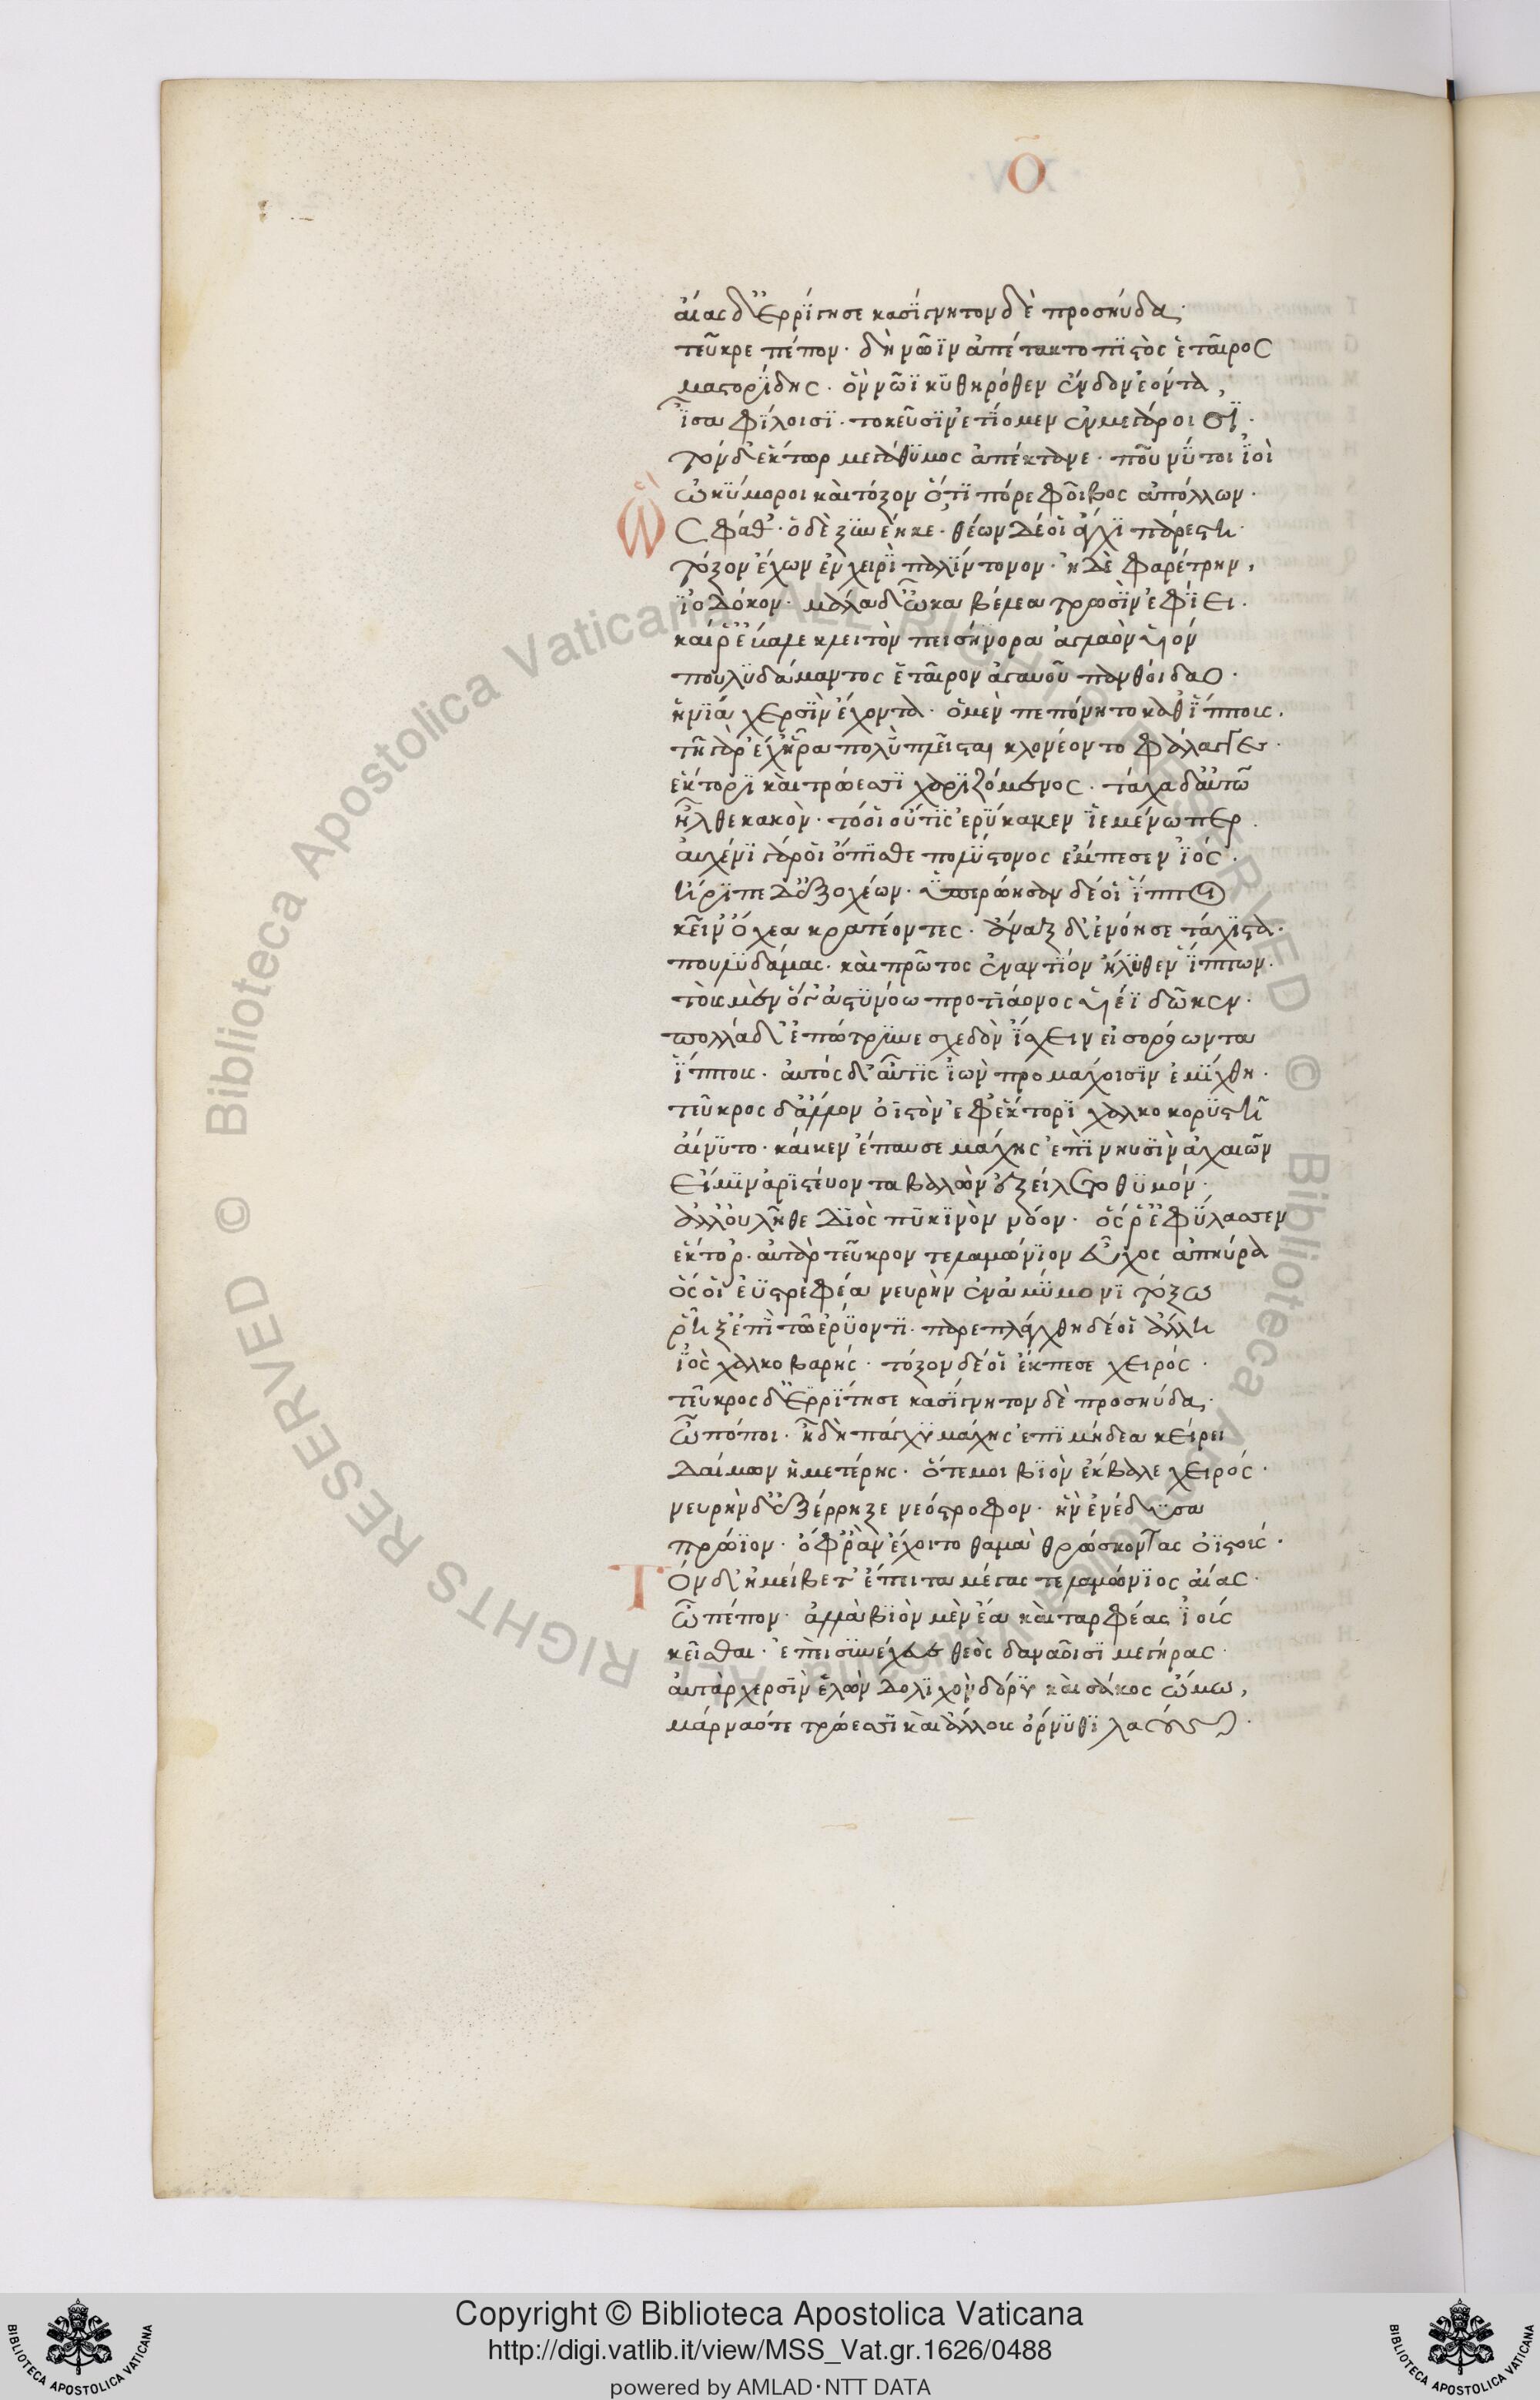 Ο
αἴας δ' ἐρρίγησε κασίγνητον δὲ προσηύδα·
τεῦκρε πέπον· δὴ νῶϊν ἀπέκτατο πιστὸς ἑταῖρος
μαστορίδης· ὃν νῶϊ κυθηρόθεν ἔνδον ἐόντα,
ἶσα φίλοισι· τοκεῦσιν ἐτίομεν ἐν μεγάροισι·
τὸν δ' ἕκτωρ μεγάθυμος ἀπέκτανε· ποῦ νύ τοι ἰοὶ
ὠκύμοροι καὶ τόξον ὅ τι πόρε φοῖβος ἀπόλλων·
Ὣς φάθ'· ὁ δὲ ξυνέηκε· θέων δέ οἱ ἄγχι παρέστη·
τόξον ἔχων ἐν χειρὶ παλίντονον· ἠδὲ φαρέτρην,
ἰοδόκον· μάλα δ' ὦκα βέλεα τρωσὶν ἐφίει·
καί ῥ' ἔβαλε κλειτὸν πεισήνορα ἀγλαὸν υἱόν
πουλυδάμαντος ἑταῖρον ἀγαυοῦ πανθοίδαο·
ἡνία χερσὶν ἔχοντα· ὁ μὲν πεπόνητο καθ' ἵππους·
τῇ γὰρ ἔχ' ᾗ ῥα πολὺ πλεῖσται κλονέοντο φάλαγγες·
ἕκτορι καὶ τρώεσσι χαριζόμενος· τάχα δ' αὐτῶ
ἦλθε κακόν· τό οἱ οὔτις ἐρύκακεν ἱεμένω περ·
αὐχένι γάρ οἱ ὄπισθε πολύστονος ἔμπεσεν ἰός·
ἤριπε δ' ἐξ ὀχέων· ὑπερώησαν δέ οἱ ἵπποι
κεῖν' ὄχεα κροτέοντες· ἄναξ δ' ἐνόησε τάχιστα·
πουλυδάμας· καὶ πρῶτος ἐναντίον ἤλυθεν ἵππων·
τοὺς μὲν ὅ γ' ἀστυνόω προτιάονος υἱέϊ δῶκεν·
πολλὰ δ' ἐπώτρυνε σχεδὸν ἴσχειν εἰσορόωντα
ἵππους· αὐτὸς δ' αὖτις ἰὼν προμάχοισιν ἐμίχθη·
τεῦκρος δ' ἄλλον ὀϊστὸν ἐφ' ἕκτορι χαλκοκορυστῇ
αἴνυτο· καί κεν ἔπαυσε μάχης ἐπὶ νηυσὶν ἀχαιῶν
εἴ μιν ἀριστεύοντα βαλὼν ἐξείλετο θυμόν·
ἀλλ' οὐ λῆθε διὸς πυκινὸν νόον· ὅς ῥ' ἐφύλασσεν
ἕκτορ· αὐτὰρ τεῦκρον τελαμώνιον εὖχος ἀπηύρα
ὅς οἱ ἐϋστρεφέα νευρὴν ἐν ἀμύμονι τόξω
ῥῆξ' ἐπὶ τῶ ἐρύοντι· παρεπλάγχθη δέ οἱ ἄλλη
ἰὸς χαλκοβαρής· τόξον δέ οἱ ἔκπεσε χειρός·
τεῦκρος δ' ἐρρίγησε κασίγνητον δὲ προσηύδα·
ὦ πόποι· ἦ δὴ πάγχυ μάχης ἐπὶ μήδεα κείρει
δαίμων ἡμετέρης· ὅ τέ μοι βιὸν ἔκβαλε χειρός·
νευρὴν δ' ἐξέρρηξε νεόστροφον· ἣν ἐνέδησα
πρώϊον· ὄφρ' ἂν ἔχοιτο θαμὰ θρώσκοντας ὀϊστούς·
Τὸν δ' ἠμείβετ' ἔπειτα μέγας τελαμώνιος αἴας·
ὦ πέπον· ἀλλὰ βιὸν μὲν ἔα καὶ ταρφέας ἰούς
κεῖσθαι· ἐπεὶ συνέχευε θεὸς δαναοῖσι μεγήρας·
αὐτὰρ χερσὶν ἑλὼν δολιχὸν δόρυ καὶ σάκος ὤμω,
μάρναό τε τρώεσσι καὶ ἄλλους ὄρνυθι λαούς·
Copyright © Biblioteca Apostolica Vaticana
http://digi.vatlib.it/view/MSS_Vat.gr.1626/0488
powered by AMLAD·NTT DATA